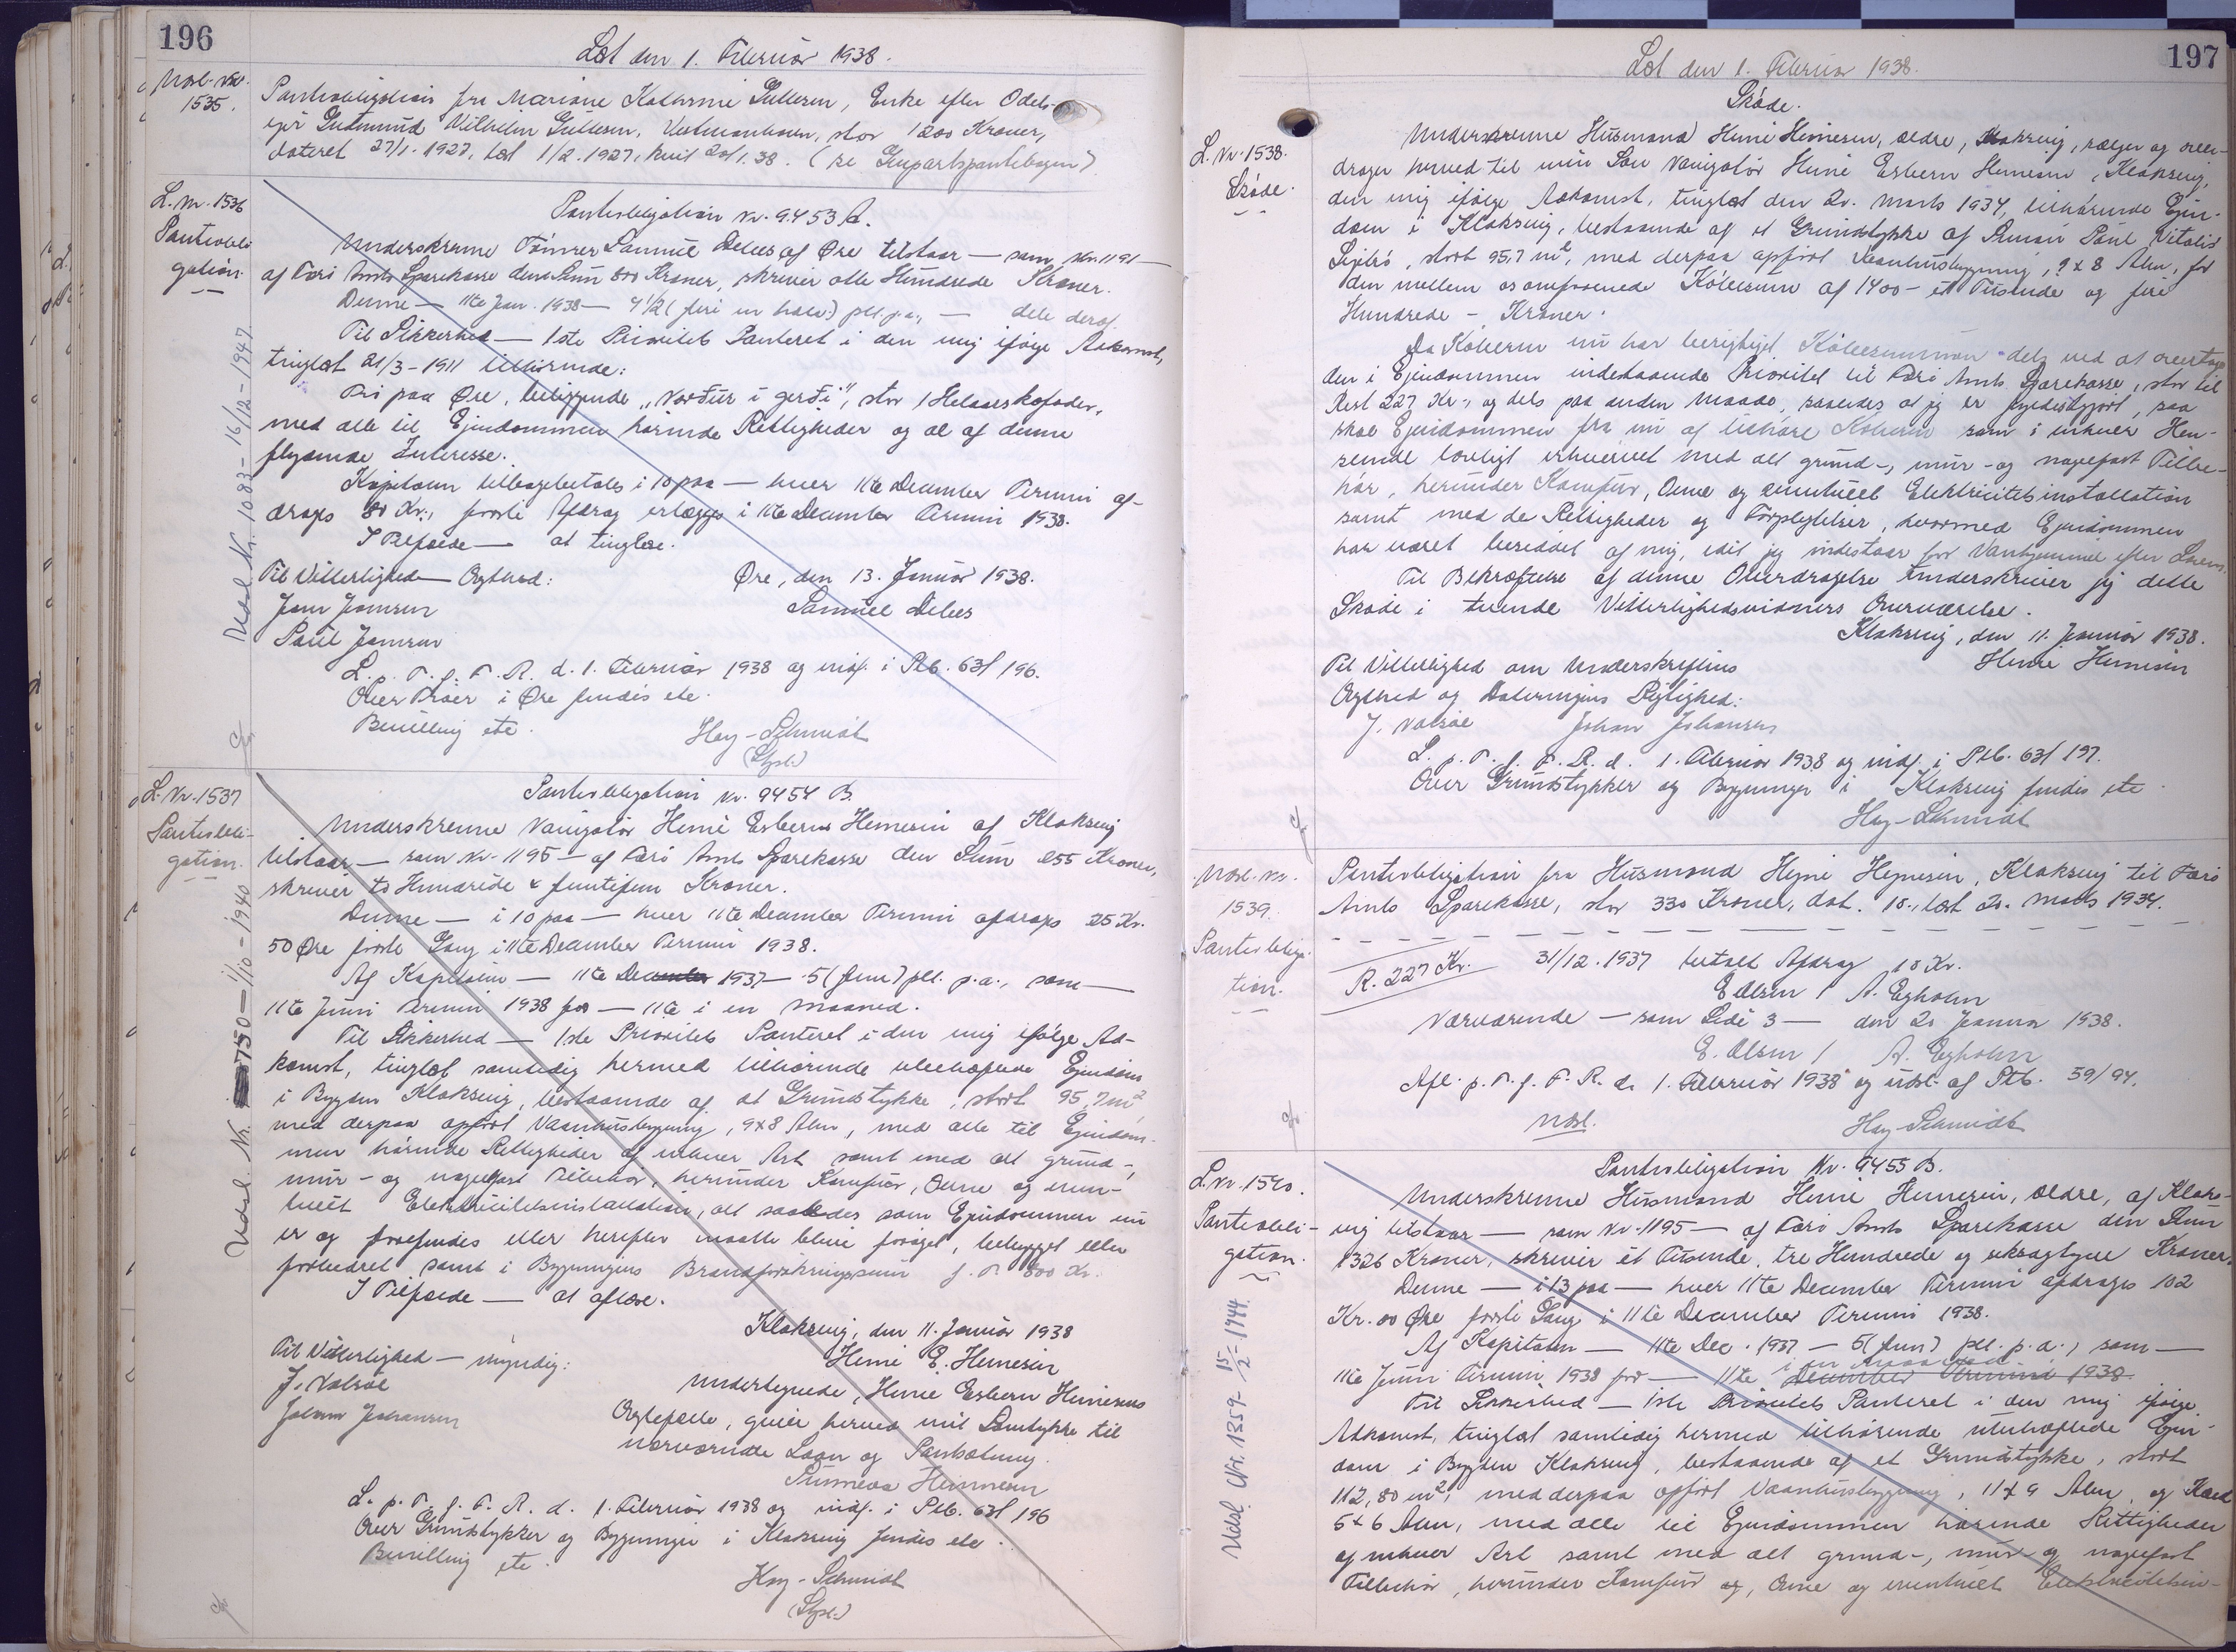 196
Læst den 1. Februar 1938.
Udsl. Nr.
1535.
Pantobligation fra Mariane Kathrine Gullesen, Enke efter Odels-
ejer Gudmund Vilhelm Gullesen, Vestmanhavn, stor 1200 Kroner,
dateret 27/1. 1927, læst 1/2. 1927, kvit 20/1. 38. (se Genpartspantebogen)
L. Nr. 1536
Pantobli-
gation
Pantobligation Nr. 9453 A.
Underskrevne Tømrer Samuel Debes af Øre tilstaar — som Nr. 1191 —
af Færø Amts Sparekasse den Sum 800 Kroner, skriver otte Hundrede Kroner.
Denne — 11te Jan. 1938 — 4 1/2 (fire en halv) pCt. p.a., — dele deraf.
Til Sikkerhed — 1ste Prioritets Panteret i den mig ifølge Adkomst,
tinglæst 21/3 - 1911 tilhørende:
Trø paa Øre, beliggende „Norður i gerði", stor 1 Helaarskofoder,
med alle til Ejendommen hørende Rettigheder og al af denne
flydende Interesse.
Kapitalen tilbagebetales i 10 paa — hver 11te December Termin af-
drages 80 Kr., første Afdrag erlægges i 11te December Termin 1938.
I Tilfælde — at tinglæse.
Til Vitterlighed — Ægthed:
Øre, den 13. Januar 1938.
Jens Joensen
Samuel Debes
Poul Joensen
L. p. T. f. F. R. d. 1. Februar 1938 og indf. i Ptb. 63/196.
Over Trøer i Øre findes ete.
Bevilling ete.
Hay-Schmidt
(Styst.)
Udsl. Nr. 1083 - 16/12 - 1947
L. Nr. 1537
Pantobli-
gation.
Pantobligation Nr. 9454 B.
Underskrevne Navigatør Heine Esbern Heinesen af Klaksvig
tilstaar — som Nr. 1195 — af Færø Amts Sparekasse den Sum 255 Kroner,
skriver to Hundrede & femtifem Kroner.
Denne — i 10 paa — hver 11te December Termin afdrages 25 Kr.
50 Øre første Gang i 11te December Termin 1938.
Af Kapitalen — 11te December 1937 — 5 (fem) pCt. p.a., som —
11te Juni Termin 1938 for — 11te i en Maaned.
Til Sikkerhed — 1ste Prioritets Panteret i den mig ifølge Ad-
komst, tinglæst samtidig hermed tilhørende ubehæftede Ejendom
i Bygden Klaksvig, bestaaende af et Grundstykke, stort 95,7 m²,
med derpaa opført Vaanhusbygning, 9x8 Alen, med alle til Ejendom-
men hørende Rettigheder af enhver Art samt med alt grund-,
mur- og nagelfast Tilbehør, herunder Komfur, Ovne og even-
tuelt Elektricitetsinstallation, alt saaledes som Ejendommen nu
er og forefindes eller herefter maatte blive forøget, bebygget eller
forbedret samt i Bygningens Brandforsikringssum f. T. 800 Kr.
I Tilfælde — at aflæse.
Klaksvig, den 11. Januar 1938
Til Vitterlighed — myndig:
Heine E. Heinesen
J. Valsøe
Undertegnede, Heine Esbern Heinesens
Johan Johansen
Ægtefælle, giver herved mit Samtykke til
nærværende Laan og Pantsætning.
Heinesen
L. p. T. f. F. R. d. 1. Februar 1938 og indf. i Ptb. 63/196
Over Grundstykker og Bygninger i Klaksvig findes ete.
Bevilling ete.
Hay-Schmidt
(Styst.)
Udsl. Nr. 750 — 1/10 - 1940
197
Læst den 1. Februar 1938.
L. Nr. 1538.
Skøde.
Skøde.
Underskrevne Husmand Heine Heinesen, ældre, Klaksvig, sælger og over-
drager herved til min Søn Navigatør Heine Esbern Heinesen, Klaksvig,
den mig ifølge Adkomst, tinglæst den 20. Marts 1934, tilhørende Ejen-
dom i Klaksvig, bestaaende af et Grundstykke af Simun Paul Vitalis
stort 95,7 m², med derpaa opført Vaanhusbygning, 9 x 8 Alen, for
den mellem os omforenede Købesum af 1400 - et Tusinde og fire
Hundrede - Kroner.
Da Køberen nu har berigtiget Købesummen dels ved at overtage
den i Ejendommen indestaaende Prioritet til Færø Amts Sparekasse, stor til
Rest 227 Kr., og dels paa anden Maade, saaledes at jeg er fyldestgjort, saa
skal Ejendommen fra nu af tilhøre Køberen som i enhver Hen-
seende lovligt erhvervet med alt grund-, mur- og nagelfast Tilbe-
hør, herunder Komfur, Ovne og eventuelt Elektricitetsinstallation
samt med de Rettigheder og Forpligtelser, hvormed Ejendommen
har været besiddet af mig, idet jeg indestaar for Vanhjemmel efter Loven.
Til Bekræftelse af denne Overdragelse underskriver jeg dette
Skøde i tvende Vitterlighedsvidners Overværelse.
Klaksvig, den 11. Januar 1938.
Til Vitterlighed om Underskriftens
Heine Heinesen
Ægthed og Dateringens Rigtighed:
J. Valsøe Johan Johansen
L. p. T. f. F. R. d. 1. Februar 1938 og indf. i Ptb. 63/197.
Over Grundstykker og Bygninger i Klaksvig findes ete.
Hay-Schmidt
Udsl. Nr.
1539.
Pantobliga-
tion.
Pantobligation fra Husmand Heine Heinesen, Klaksvig til Færø
Amts Sparekasse, stor 330 Kroner, dat. 10., læst 20. Marts 1934.
R. 227 Kr.
31/12. 1937 betalt Afdrag 10 Kr.
E Olsen / A. Egholm
Nærværende — som Side 3 — den 20 Januar 1938.
E. Olsen / A. Egholm
Afl. p. T. f. F. R. d. 1. Februar 1938 og udsl. af Ptb. 59/94.
Udsl.
Hay-Schmidt
L. Nr. 1540.
Pantobli-
gation.
Pantobligation Nr. 9455 B.
Underskrevne Husmand Heine Heinesen, ældre, af Klaks-
vig tilstaar — som Nr. 1195 — af Færø Amts Sparekasse den Sum
1326 Kroner, skriver et Tusinde, tre Hundrede og seksogtyve Kroner.
Denne — i 13 paa — hver 11te December Termin afdrages 102
Kr. 00 Øre første Gang i 11te December Termin 1938.
Af Kapitalen — 11te Dec. 1937 — 5 (fem) pCt. p.a., som —
11te Juni Termin 1938 for — 11te i en Maaned December Termin 1938.
Til Sikkerhed — 1ste Prioritets Panteret i den mig ifølge
Adkomst, tinglæst samtidig hermed tilhørende ubehæftede Ejen-
dom i Bygden Klaksvig, bestaaende af et Grundstykke, stort
112,80 m², med derpaa opført Vaanhusbygning, 11x9 Alen, og
5x6 Alen, med alle til Ejendommen hørende Rettigheder
af enhver Art samt med alt grund-, mur- og nagelfast
Tilbehør, herunder Komfur og, Ovne og eventuelt Elektricitetsin-
Udsl. Nr. 1359 - 15/2 - 1944.